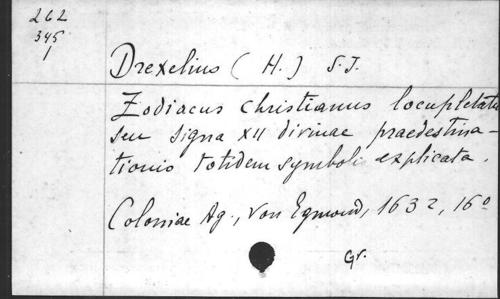 262
345
1
Drexelius (H.) S.J.
Zodiacus christianus locupletatus
seu signa XII divinae praedestina-
tionis totidem symboli explicata.
Coloniae Ag., von Egmond, 1632, 16º
Gr.